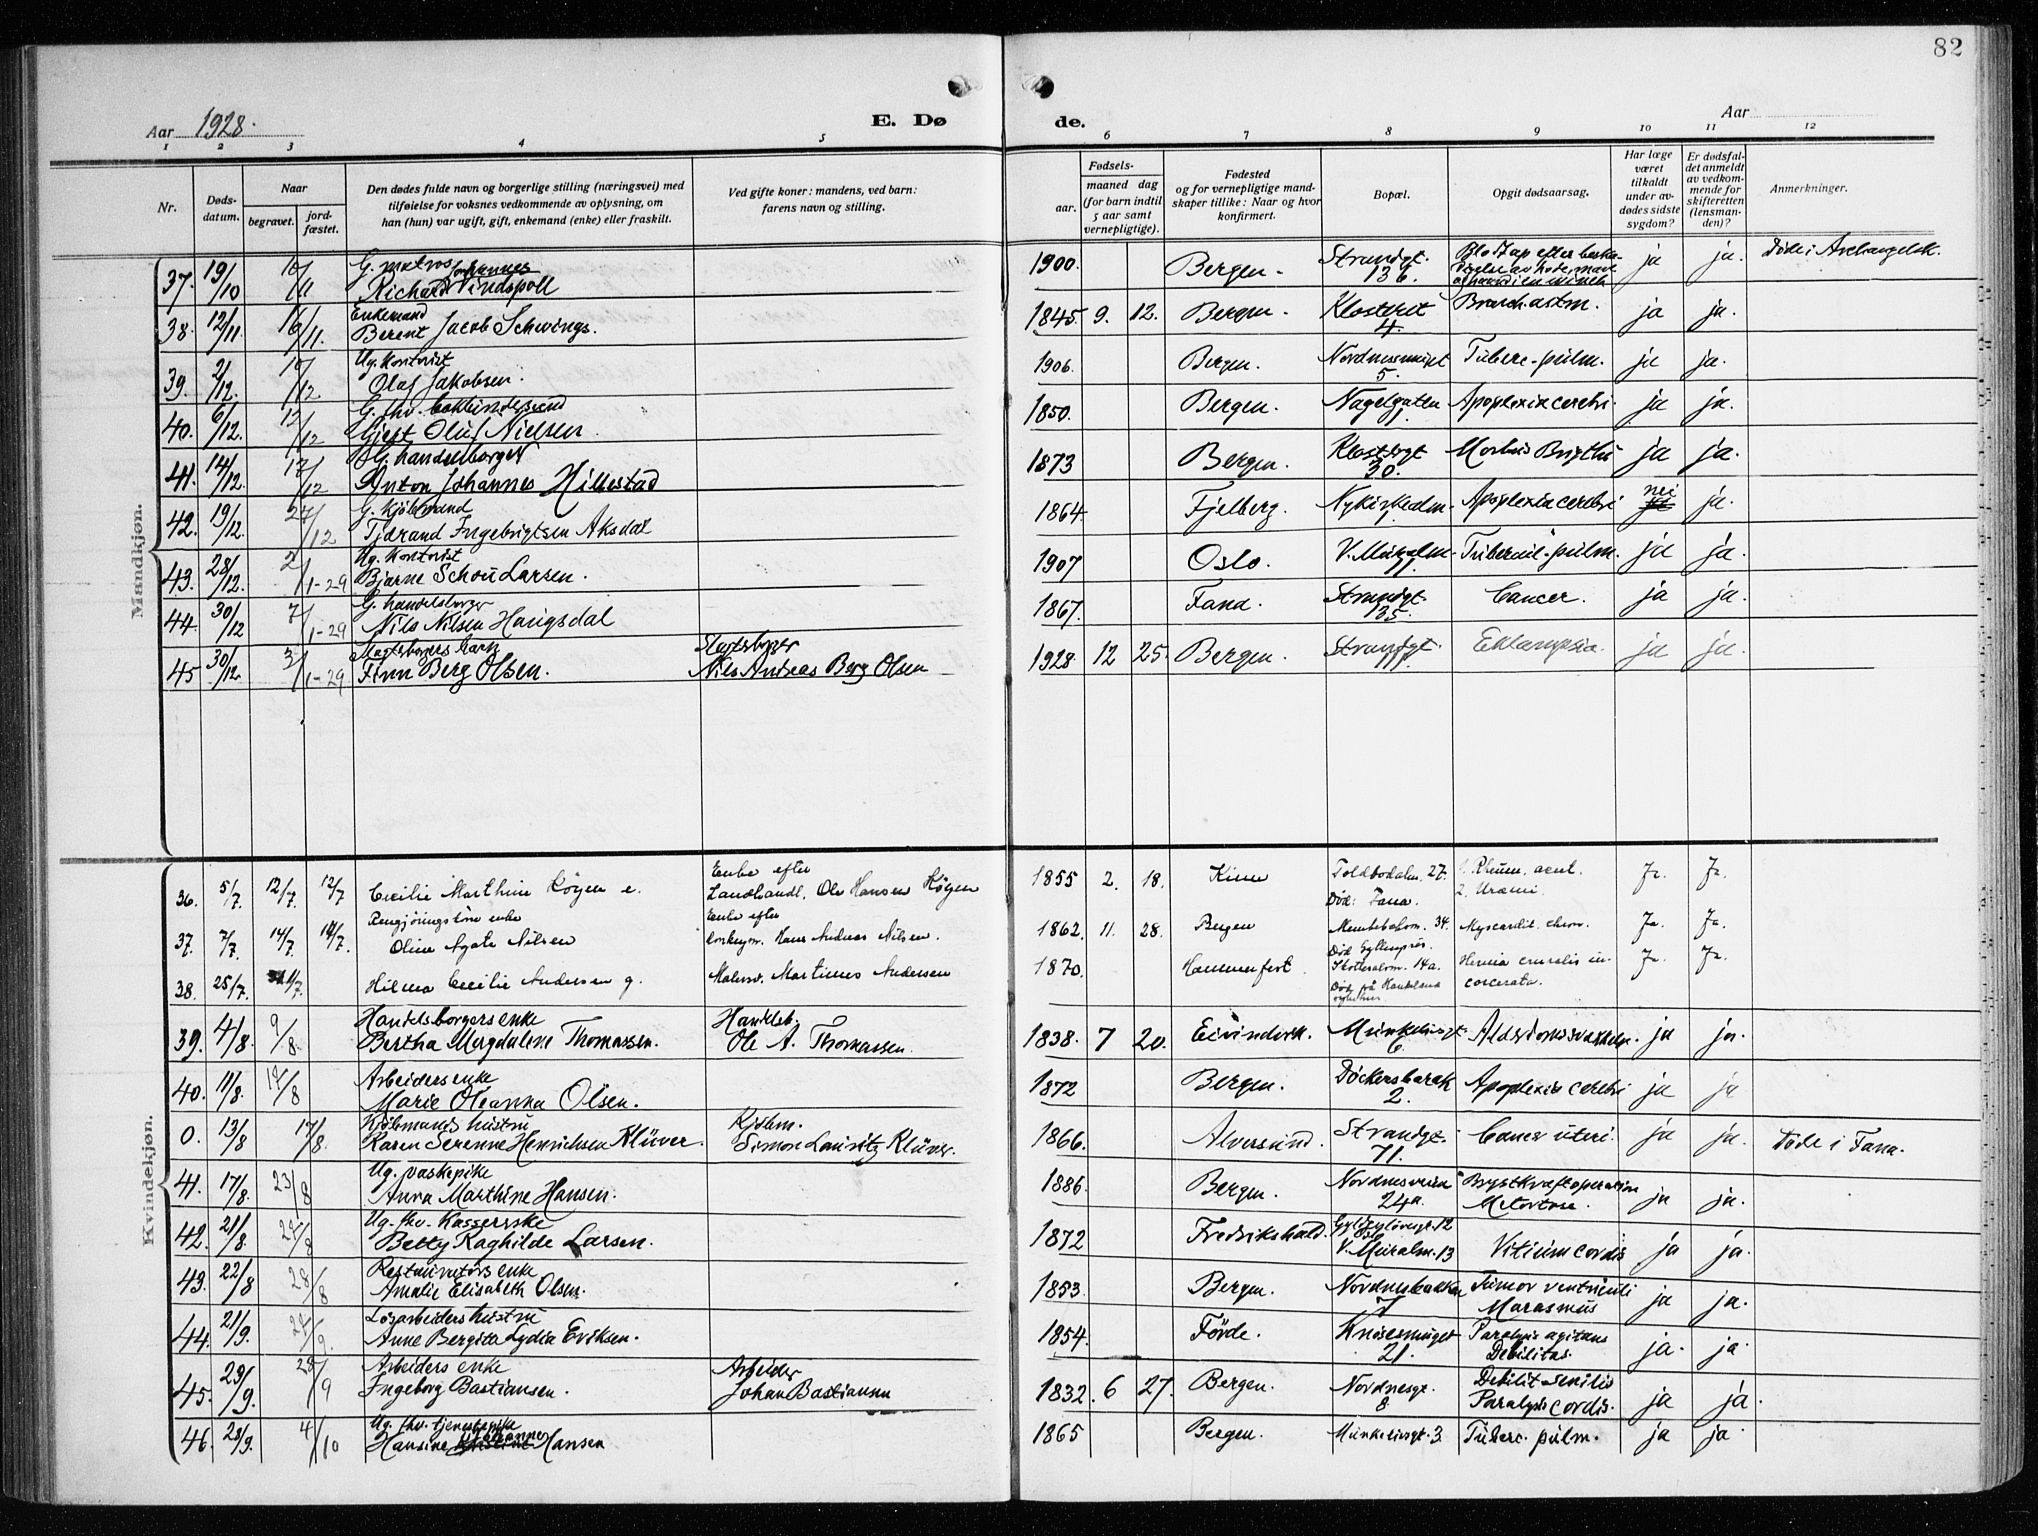 82
Aar 1928.
E. Døde.
Aar
1 2 3 4 5 6 7 8 9 10 11 12
Nr.
Døds-
datum.
Naar
begravet.
jord-
fæstet.
Den dødes fulde navn og borgerlige stilling (næringsvei) med
tilføielse for voksnes vedkommende av oplysning, om
han (hun) var ugift, gift, enkemand (enke) eller fraskilt.
Ved gifte koner: mandens, ved barn:
farens navn og stilling.
Fødsels-
aar.
maaned dag
(for barn indtil
5 aar samt
vernepligtige).
Fødested
og for vernepligtige mand-
skaper tillike: Naar og hvor
konfirmert.
Bopæl.
Opgit dødsaarsag.
Har læge
været
tilkaldt
under av-
dødes sidste
sygdom?
Er dødsfal-
det anmeldt
av vedkom-
mende for
skifteretten
(lensman-
den)?
Anmerkninger.
Mandkjøn.
37. 19/10 10/11 G. matros Richard Johannes Vindspoll 1900. Bergen. Strandgt. 136. ja ja. Døde i Archangelsk.
38. 12/11 16/11. Enkemand Berent Jacob Schwings. 1845. 9. 12. Bergen. Klosteret 4. Bronch. astm. ja ja.
39. 2/12. 10/12 Ug. Kontorist Olaf Jakobsen. 1906. Bergen. 5. Tuberc. pulm. ja ja.
40. 6/12. 12/12 G. fhv. Gjert Oluf Nielsen. 1850. Bergen. Nagelgaten 1 Apoplexia cerebri ja ja.
41. 14/12. 17/12 G. handelsborger Anton Johannes Hillestad 1873 Bergen. Klostergt 30. Morbus Brigthii ja ja.
42. 19/12. 27/12 G. Kjøbmand Tjerand Ingebrigtsen Aksdal 1864. Fjelberg. Nykirkealm. 1 Apoplexia cerebri nei ja.
43. 28/12. 2/1-29 Ug. Kontorist Bjarne Schou Larsen. 1907 Oslo. V. Muralm. 11. Tubercul. pulm. ja ja.
44. 30/12 7/1-29 G. handelsborger Nils Nilsen Haugsdal 1867. Fana. Strandgt. 135. Cancer. ja ja.
45 30/12. 3/1-29 barn Finn Berg Olsen. Nils Andreas Berg Olsen 1928. 12 25. Bergen. Strandgt. Eklampsia. ja ja.
Kvindekjøn.
36. 5/7. 12/7. 12/7 Cecilie Marthine Høgen e. Enke efter Landhandl. Ole Hansen Høgen 1855 2. 18. Kinn Toldbodalm. 27. Død: Fana. 1. Rheum. acut. 2. Uræmi. Ja. Ja.
37. 7/7. 14/7. 14/7. Rengjøringskone enke Oline Agate Nilsen Enke efter Hans Andreas Nilsen. 1862. 11. 28. Bergen 34. Myocardit. chron. Ja. Ja.
38. 25/7. Hilma Cecilie Andersen g. Martinus Andersen 1870. Hammerfest. 14a. Hernia cruralis incarcerata. Ja. Ja.
39. 4/8. 9/8. Handelsborgers enke Bertha Magdalene Thomassen. Handelsb. Ole A. Thomassen. 1838. 7 20. Eivindvik. Munkelivsgt. 6. Alderdomssvakhet. ja ja.
40. 11/8. 14/8 Arbeiders enke Marie Oleanna Olsen. 1872 Bergen. Dockersbarak 2. Apoplexia cerebri ja ja
0. 13/8 17/8. Kjøbmands hustru Karen Serenne Henrichsen Klüver. Kjøbm. Simon Lauritz Klüver. 1866. Alversund. Strandgt. 71. Cancer uteri. ja ja. Døde i Fana.
41. 17/8. 23/8 Ug. vaskepike Anna Marthine Hansen. 1886. Bergen. Nordnesveien 24a. Brystkræftoperation ja ja.
42. 21/8. 24/8 Ug. fhv. Kassererske Betty Raghilde Larsen. 1872 Fredrikshald. V. Muralm. 13 Vitium cordis ja ja.
43. 22/8 28/8 Restauratørs enke Amalie Elisabeth Olsen. 1853. Bergen. Nordnesbakken 7 Tumor ventriculi Marasmus ja ja.
44. 21/9. 24/9. Løsarbeiders hustru Anne Bergitta Lydia Eriksen. 1854. Førde. Knøsesmuget 21. Paralysis agitans Debilitas. ja. ja.
45. 23/9. 28/9 Arbeiders enke Ingeborg Bastiansen. Arbeider Johan Bastiansen 1832. 6 27. Bergen. Nordnesgt. 8 Debilit. senilis Paralysis cordis. ja ja.
46. 28/9. 4/10 Ug. fhv. tjenestepike Hansine Johanne Hansen 1865 Bergen. Munkelivsgt. 3. Tuberc. pulm. ja ja.